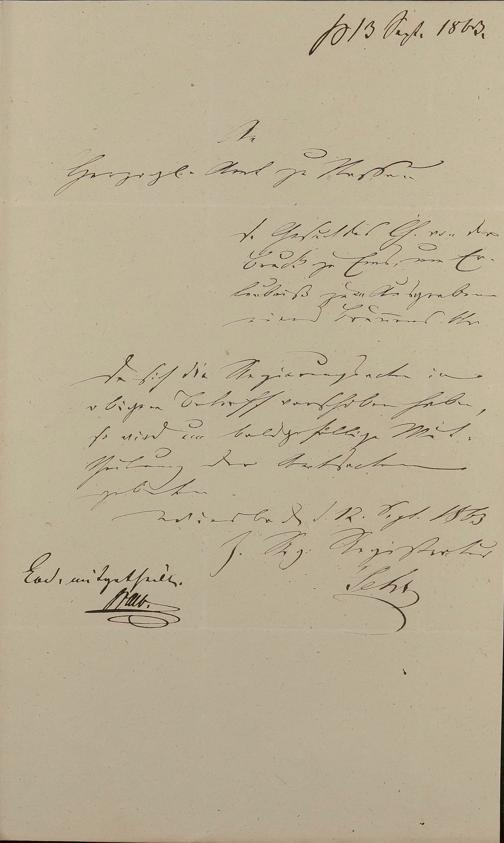 13 Sept. 1863.
An
Herzogl. Amt zu Nassau
d. Gesuch des Ch. von der
Bruck zu Ems, um Er-
laubniß zum Ausgraben
eines Brunnens
Da sich die Regierungsacten in
obigem Betreff verschoben haben,
so wird um baldgefällige Mit-
theilung der Amtsacten
gebeten
Wiesbaden d 12. Sept. 1863
H. Rg. Registratur
Eod. mitgetheilt.